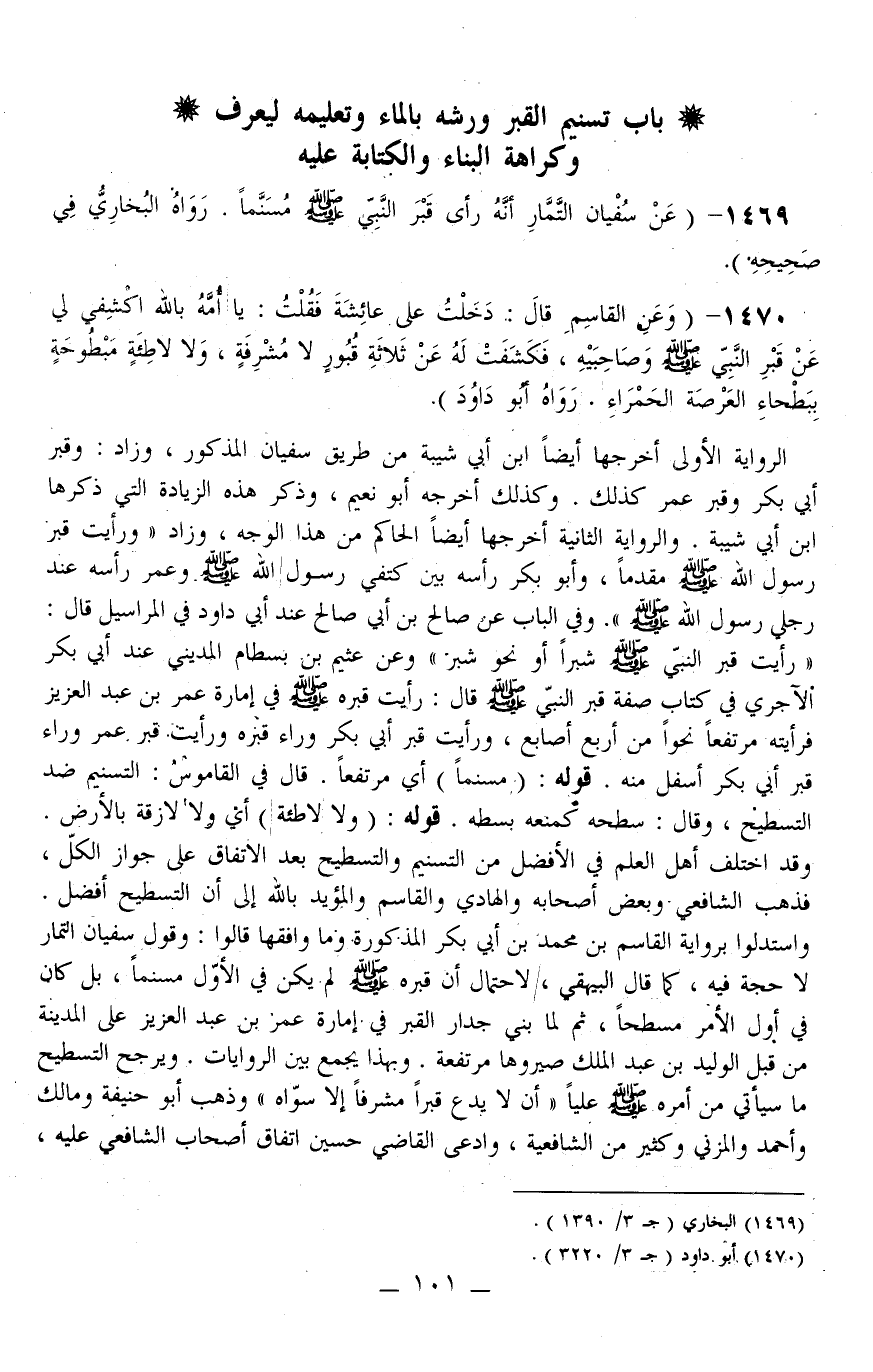 ✹ باب تسنيم القبر ورشه بالماء وتعليمه ليعرف ✹
وكراهة البناء والكتابة عليه
١٤٦٩- ( عَنْ سُفْيان التَّمَّارِ أنَّهُ رأى قَبْرَ النَّبِيّ ﷺ مُسَنَّماً . رَوَاهُ البُخارِيُّ فِي
صَحِيحِهِ ).
١٤٧٠- ( وَعَنِ القاسِمِ قالَ : دَخَلْتُ على عائِشَةَ فَقُلْتُ : يا أُمَّهُ بالله اكْشِفِي لي
عَنْ قَبْرِ النَّبِيّ ﷺ وَصَاحِبَيْهِ ، فَكَشَفَتْ لَهُ عَنْ ثَلاثَةِ قُبُورٍ لا مُشْرِفَةٍ ، وَلا لاطِئَةٍ مَبْطُوحَةٍ
بِبَطْحاءِ العَرْصَة الحَمْرَاءِ . رَوَاهُ أبُو دَاوُدَ ).
الرواية الأولى أخرجها أيضاً ابن أبي شيبة من طريق سفيان المذكور ، وزاد : وقبر
أبي بكر وقبر عمر كذلك . وكذلك أخرجه أبو نعيم ، وذكر هذه الزيادة التي ذكرها
ابن أبي شيبة . والرواية الثانية أخرجها أيضاً الحاكم من هذا الوجه ، وزاد « ورأيت قبر
رسول الله ﷺ مقدماً ، وأبو بكر رأسه بين كتفي رسول الله ﷺ وعمر رأسه عند
رجلي رسول الله ﷺ ». وفي الباب عن صالح بن أبي صالح عند أبي داود في المراسيل قال :
« رأيت قبر النبيّ ﷺ شبراً أو نحو شبر » وعن عثيم بن بسطام المديني عند أبي بكر
الآجري في كتاب صفة قبر النبيّ ﷺ قال : رأيت قبره ﷺ في إمارة عمر بن عبد العزيز
فرأيته مرتفعاً نحواً من أربع أصابع ، ورأيت قبر أبي بكر وراء قبره ورأيت قبر عمر وراء
قبر أبي بكر أسفل منه . قوله : ( مسنماً ) أي مرتفعاً . قال في القاموس : التسنيم ضد
التسطيح ، وقال : سطحه كمنعه بسطه . قوله : ( ولا لاطئة ) أي ولا لازقة بالأرض .
وقد اختلف أهل العلم في الأفضل من التسنيم والتسطيح بعد الاتفاق على جواز الكلّ ،
فذهب الشافعي وبعض أصحابه والهادي والقاسم والمؤيد بالله إلى أن التسطيح أفضل .
واستدلوا برواية القاسم بن محمد بن أبي بكر المذكورة وما وافقها قالوا : وقول سفيان التمار
لا حجة فيه ، كما قال البيهقي ، لاحتمال أن قبره ﷺ لم يكن في الأوّل مسنماً ، بل كان
في أول الأمر مسطحاً ، ثم لما بني جدار القبر في إمارة عمر بن عبد العزيز على المدينة
من قبل الوليد بن عبد الملك صيروها مرتفعة . وبهذا يجمع بين الروايات . ويرجح التسطيح
ما سيأتي من أمره ﷺ علياً « أن لا يدع قبراً مشرفاً إلا سوّاه » وذهب أبو حنيفة ومالك
وأحمد والمزني وكثير من الشافعية ، وادعى القاضي حسين اتفاق أصحاب الشافعي عليه ،
(١٤٦٩) البخاري ( جـ ٣/ ١٣٩٠ ) .
(١٤٧٠) أبو داود ( جـ ٣/ ٣٢٢٠ ) .
_ ١٠١ _